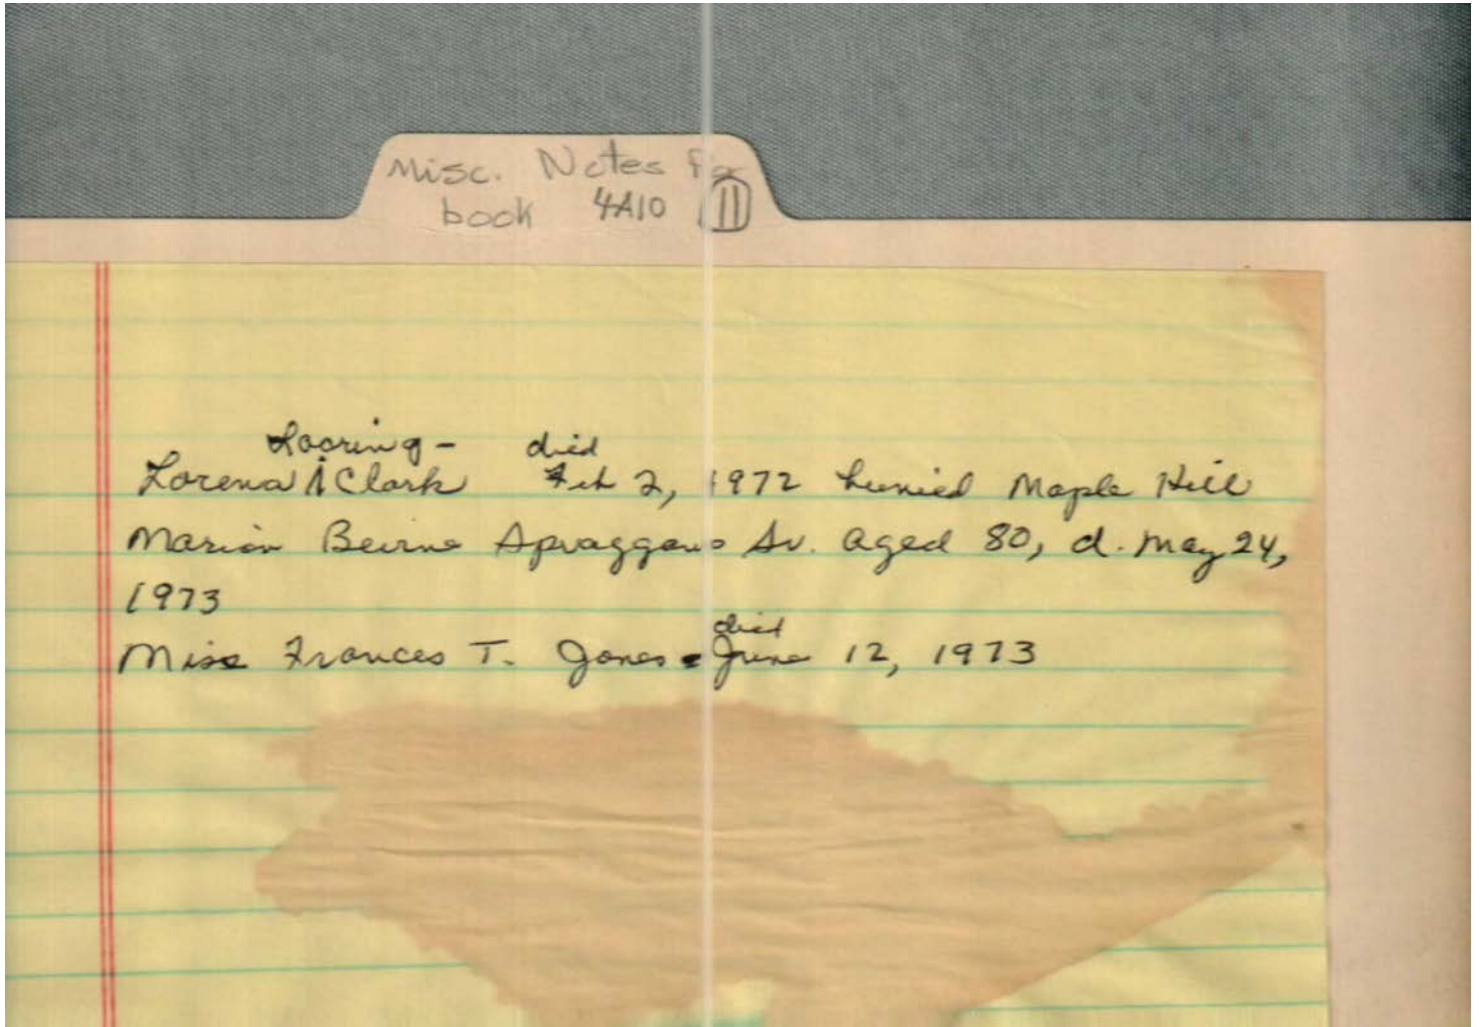 Misc. Notes for
book 4A10 11
Looring - died
Lorena Clark Feb 2, 1972 buried Maple Hill
Marion Beirne Spraggans Sr. aged 80, d. May 24,
1973
died
Miss Frances T. Jones - June 12, 1973